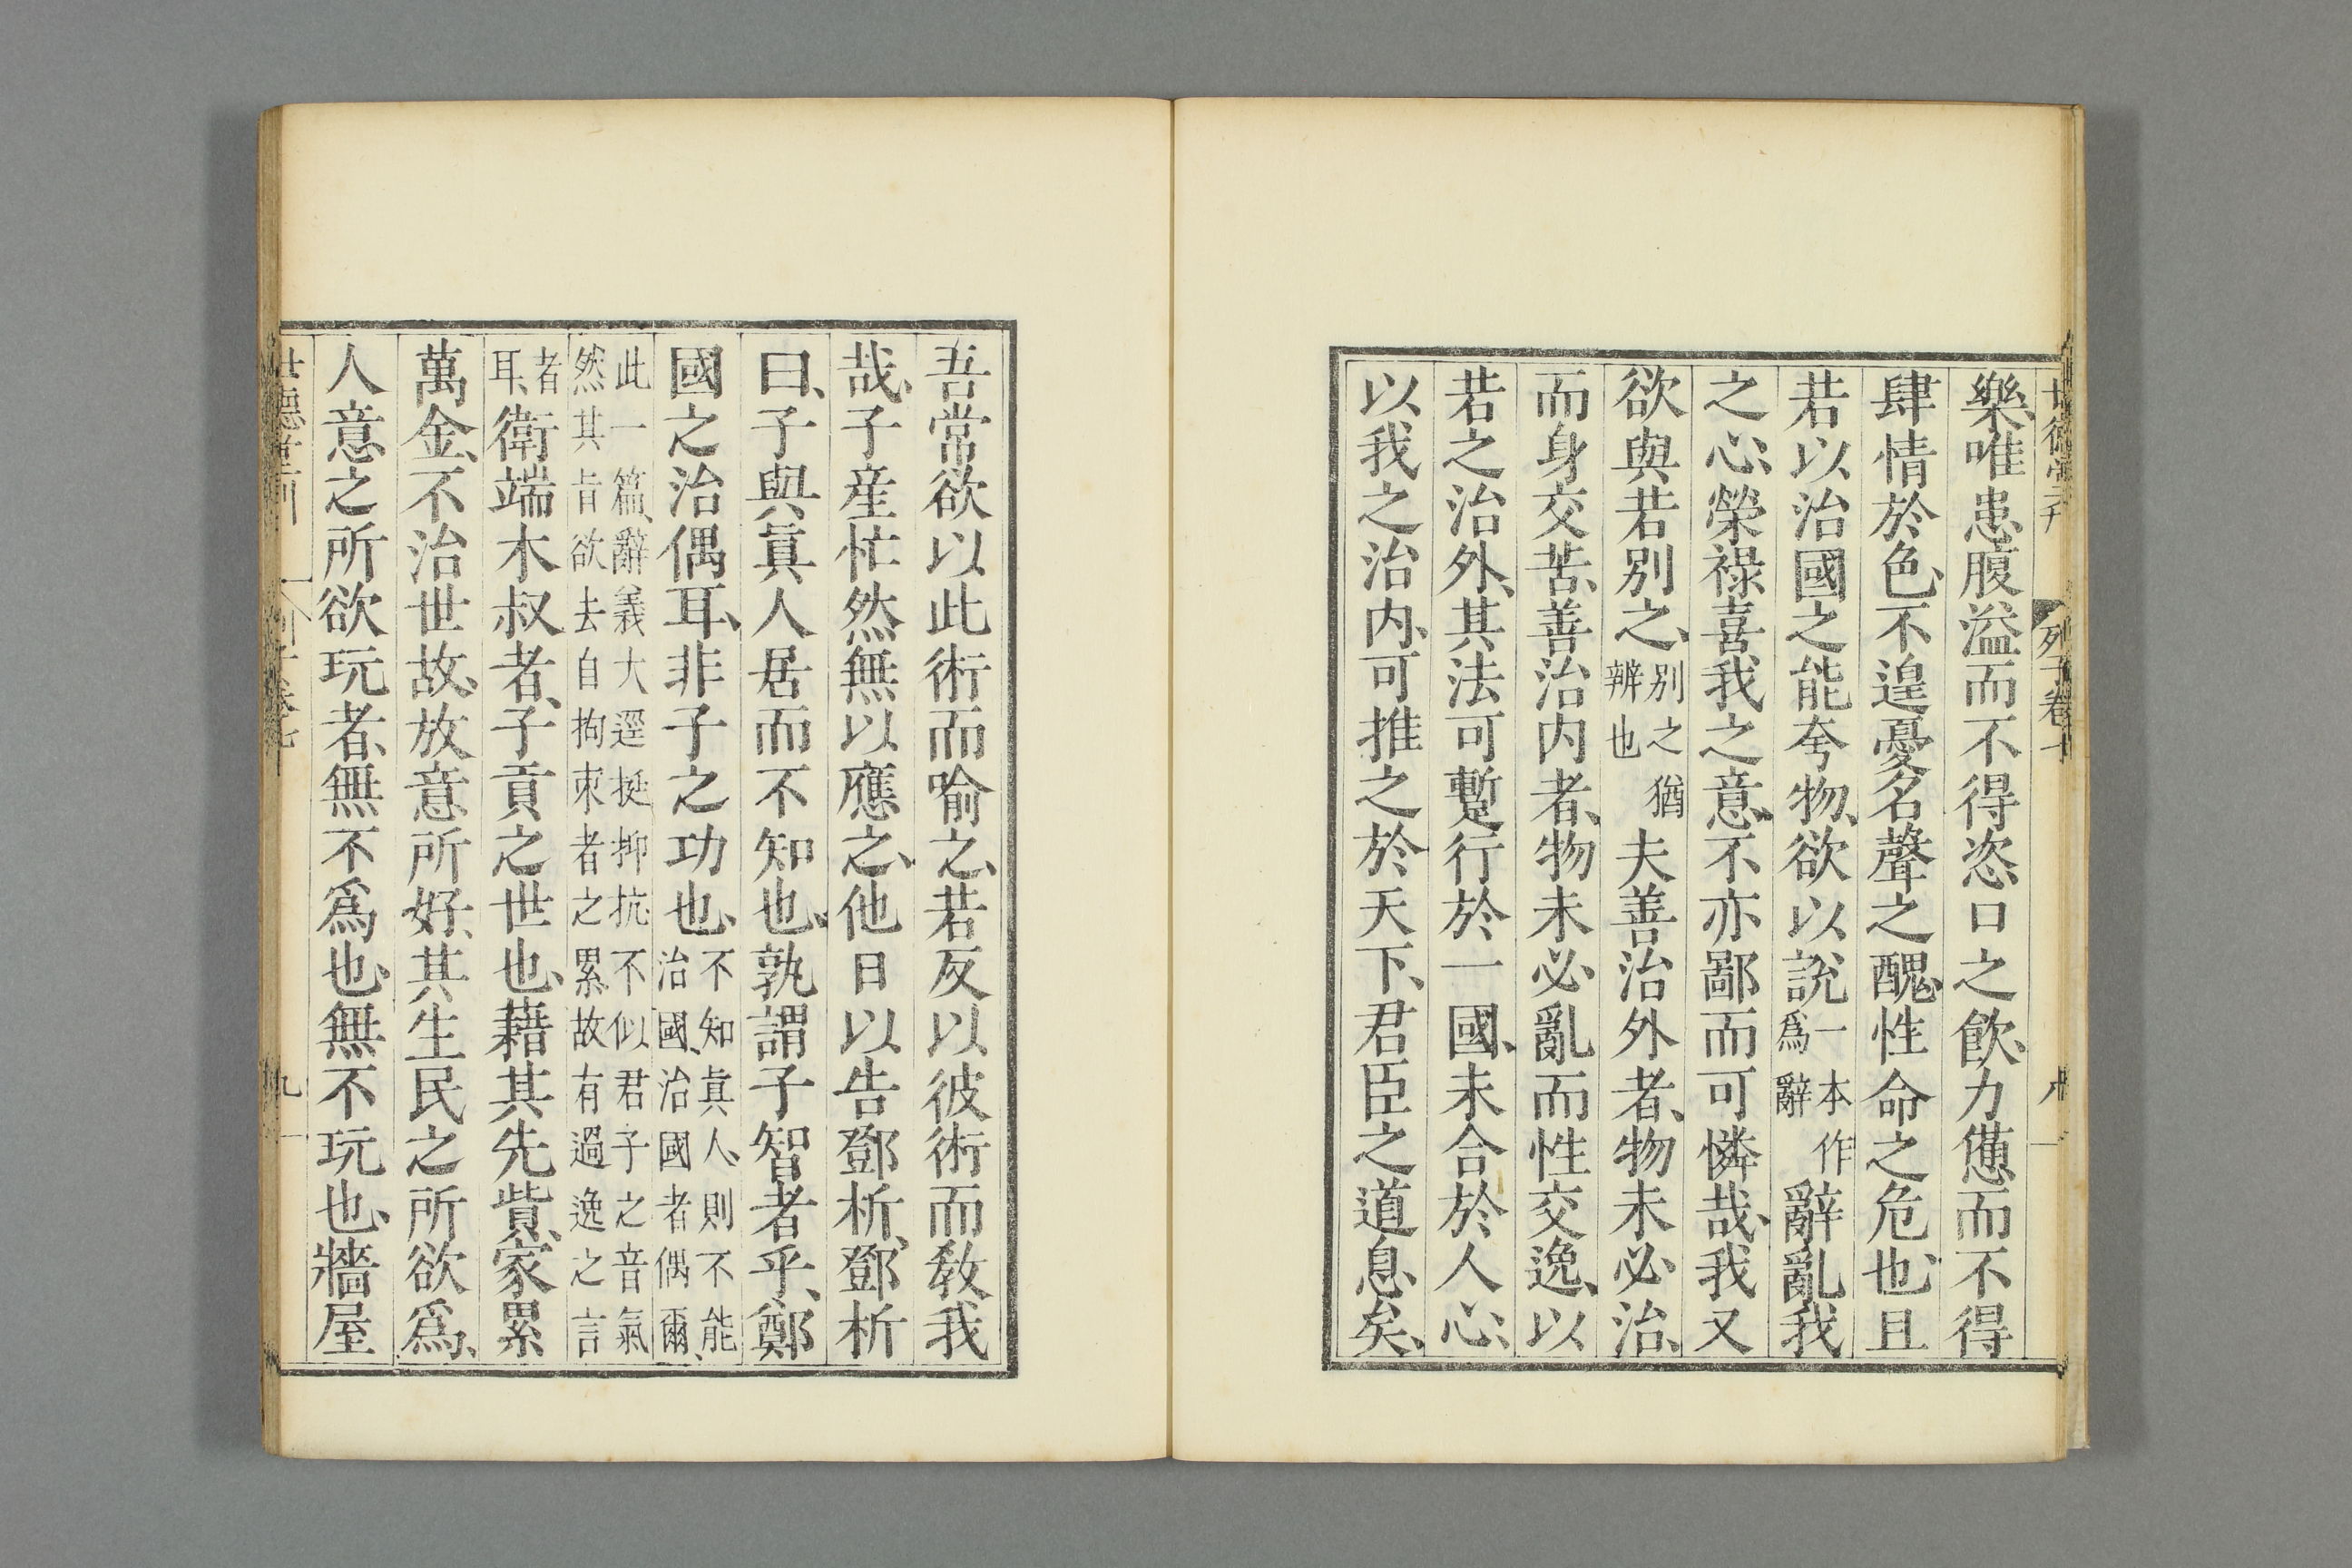 樂、唯患腹溢而不得恣口之飲、力憊而不得
肆情於色、不遑憂名聲之醜、性命之危也、且
若以治國之能夸物、欲以說一本作爲辭辭亂我
之心、榮祿喜我之意、不亦鄙而可憐哉、我又
欲與若別之、別之猶辨也夫善治外者、物未必治、
而身交苦、善治内者、物未必亂而性交逸、以
若之治外、其法可暫行於一國、未合於人心、
以我之治内、可推之於天下、君臣之道息矣、
吾常欲以此術而喻之、若反以彼術而敎我
哉、子産忙然無以應之、他日以告鄧析、鄧析
曰、子與眞人居而不知也、孰謂子智者乎、鄭
國之治偶耳、非子之功也、不知眞人、則不能治國、治國者偶爾、
此一篇、辭義大逕挺抑抗不似君子之音氣
然其旨欲去自拘束者之累故有過逸之言
者耳、衛端木叔者、子貢之世也、藉其先貲、家累
萬金、不治世故、放意所好、其生民之所欲爲、
人意之所欲玩者、無不爲也、無不玩也、牆屋